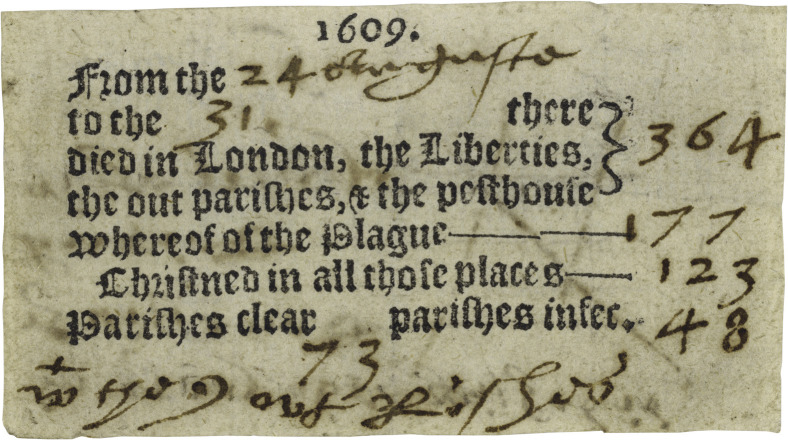 1609.
From the 24 Auguste
to the 31 there
died in London, the Liberties, 364
the out parishes, & the pesthouse
whereof of the Plague 177
Christned in all those places 123
Parishes clear 73 parishes infec. 48
wth the 9 out